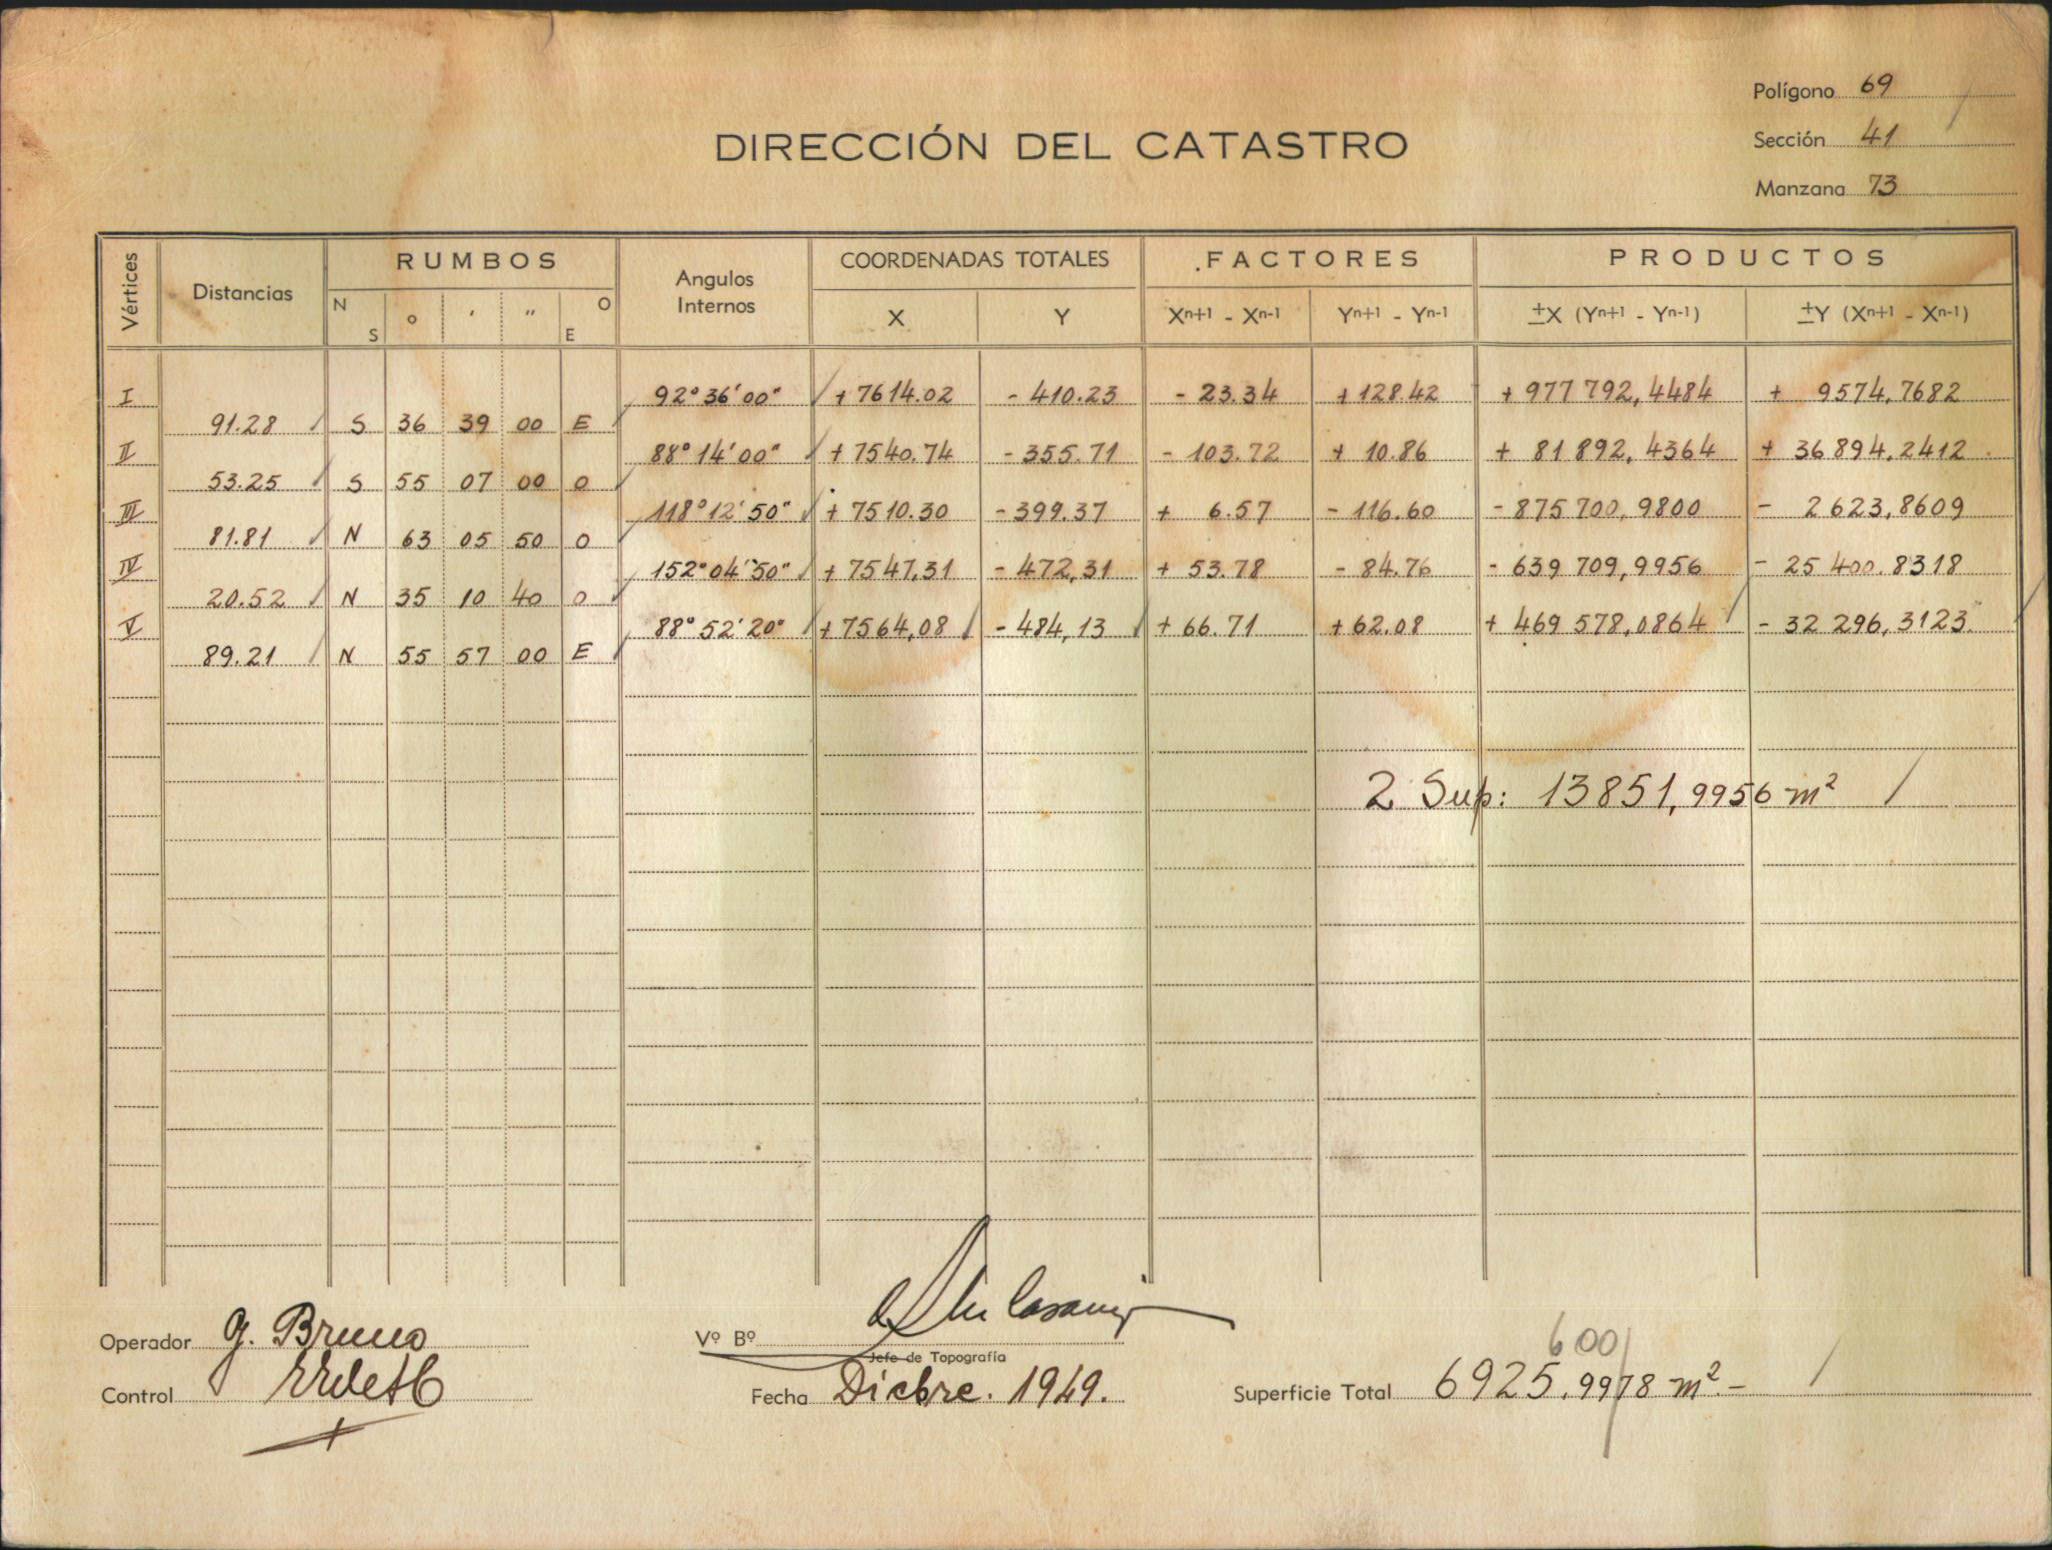 Polígono 69
DIRECCIÓN DEL CATASTRO
Sección 41
Manzana 73
Vértices Distancias RUMBOS Angulos Internos COORDENADAS TOTALES FACTORES PRODUCTOS
N S ° ' " O E X Y Xⁿ⁺¹ - Xⁿ⁻¹ Yⁿ⁺¹ - Yⁿ⁻¹ ±X (Yⁿ⁺¹ - Yⁿ⁻¹) ±Y (Xⁿ⁺¹ - Xⁿ⁻¹)
I 92°36'00" + 7614.02 - 410.23 - 23.34 + 128.42 + 977 792,4484 + 9574,7682
91.28 S 36 39 00 E
II 88°14'00" + 7540.74 - 355.71 - 103.72 + 10.86 + 81 892,4364 + 36 894,2412
53.25 S 55 07 00 O
III 118°12'50" + 7510.30 - 399.37 + 6.57 - 116.60 - 875 700,9800 - 2 623,8609
81.81 N 63 05 50 O
IV 152°04'50" + 7547,31 - 472,31 + 53.78 - 84.76 - 639 709,9956 - 25 400.8318
20.52 N 35 10 40 O
V 88°52'20" + 7564,08 - 484,13 + 66.71 + 62.08 + 469 578,0864 - 32 296,3123
89.21 N 55 57 00 E
2 Sup: 13851,9956 m²
Operador G. Bruno
Vº Bº
Jefe de Topografía
600
Control
Fecha Dicbre. 1949.
Superficie Total 6925,9978 m².-